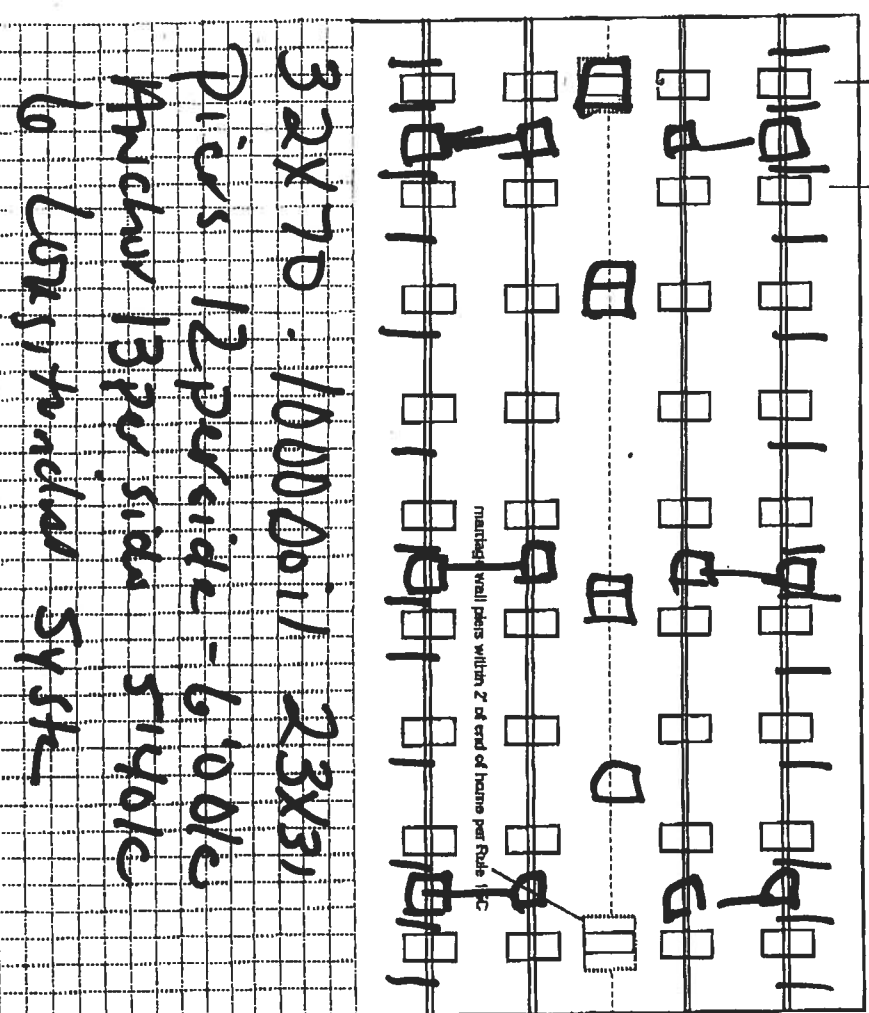 marriage wall piers within 2' of end of home per Rule 15C
32x70. 1000 soil 23x31
Piers 12 per side - 6'0 o/c
Anchor 13 per side 5'4 o/c
6 Longitudinal Syst